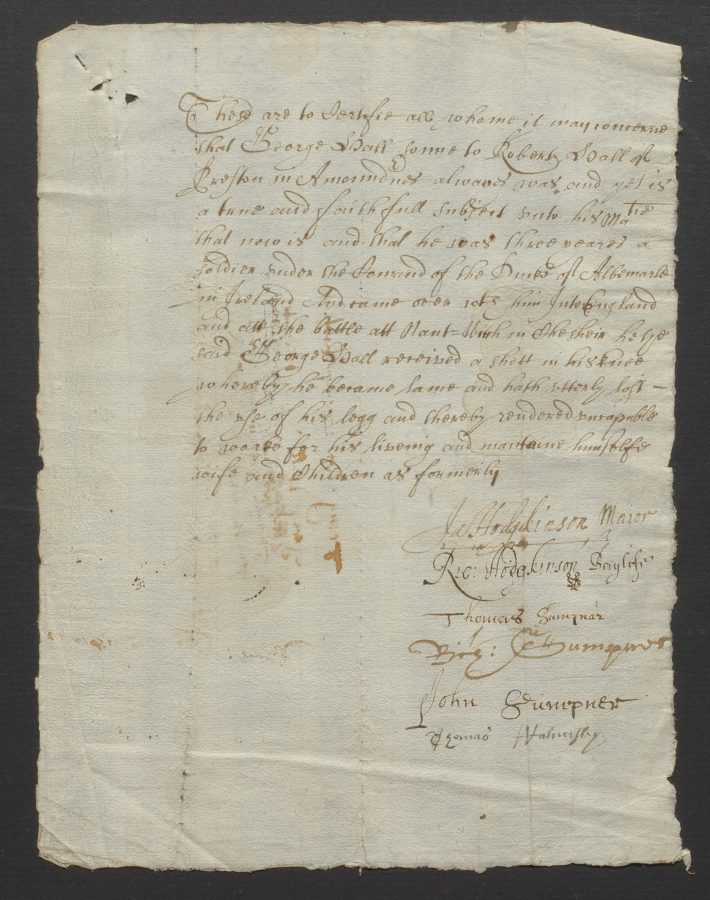 These are to Certifie all whome it may concerne
that George Wall sonne to Robert Wall of
Preston in Amoundnes alwaies was and yet is
a true and faithfull subject unto his Matie
that now is and that he was three yeares a
soldier under the Comand of the Duke of Albemarle
in Ireland And came over with him into England
and att the battle att Nant-wich in Chesheir he ye
said George Wall received a shott in his knee
whereby he became lame and hath utterly lost
the use of his legg and thereby rendered uncapable
to worke for his liveing and mantaine himselfe
wife and Children as formerly
Ja: Hodgkinson Maior
Ric: Hodgkinson Baylife
Thomas Sumpnar
Sumpner
John Sumpner
Thomas Walmsley